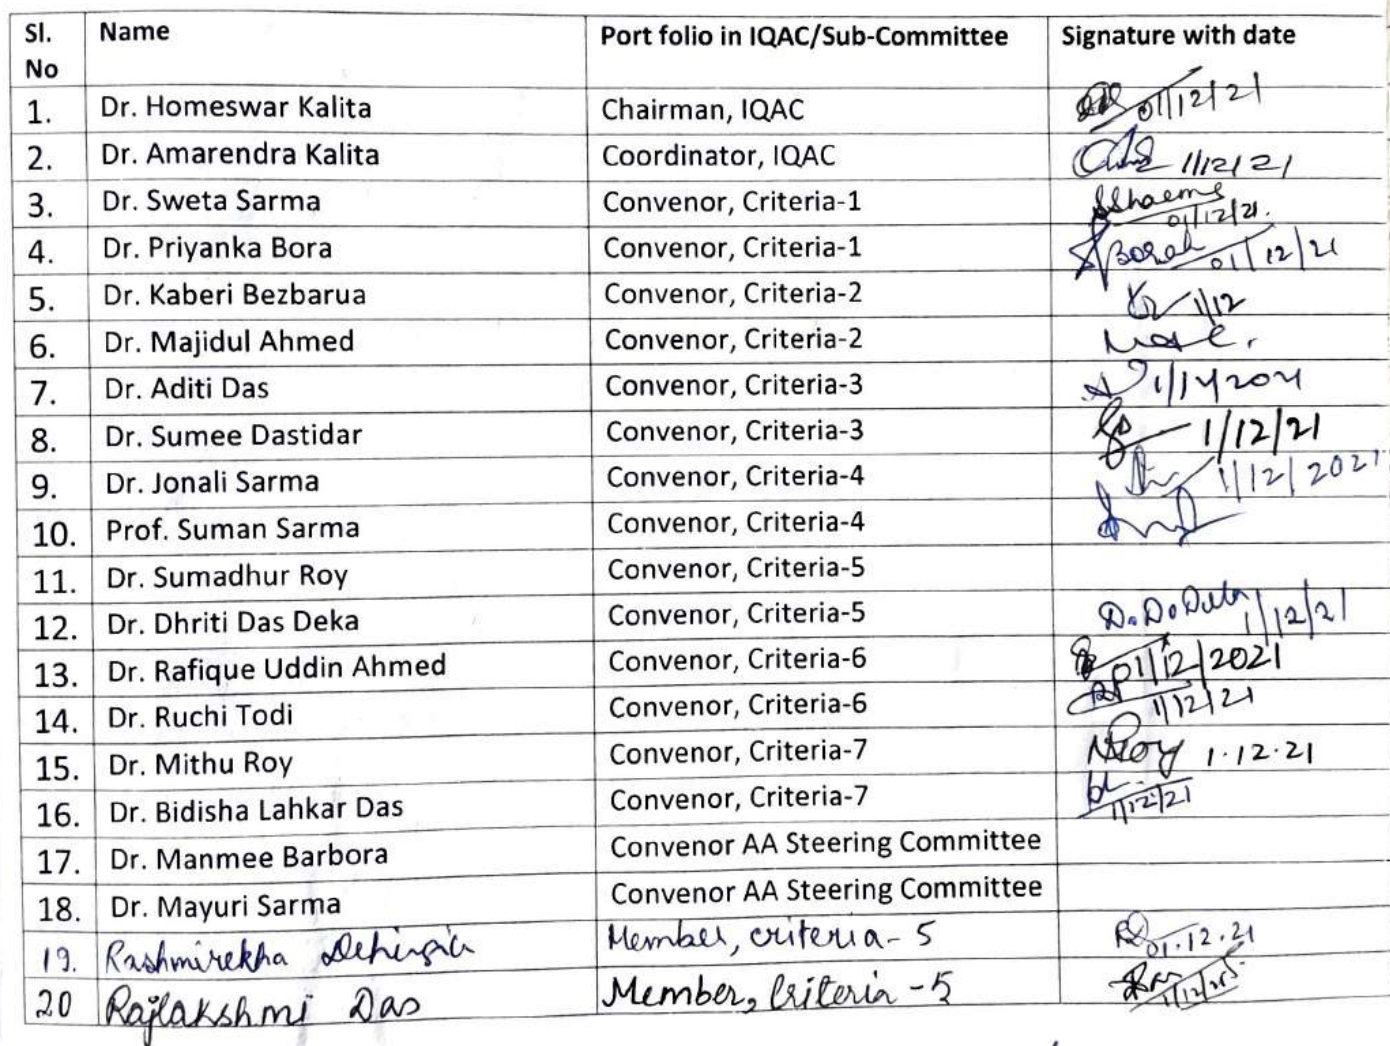 Sl. No Name Port folio in IQAC/Sub-Committee Signature with date
1. Dr. Homeswar Kalita Chairman, IQAC 01/12/21
2. Dr. Amarendra Kalita Coordinator, IQAC 1/12/21
3. Dr. Sweta Sarma Convenor, Criteria-1 01/12/21.
4. Dr. Priyanka Bora Convenor, Criteria-1 Borah 01/12/21
5. Dr. Kaberi Bezbarua Convenor, Criteria-2 1/12
6. Dr. Majidul Ahmed Convenor, Criteria-2
7. Dr. Aditi Das Convenor, Criteria-3
8. Dr. Sumee Dastidar Convenor, Criteria-3 1/12/21
9. Dr. Jonali Sarma Convenor, Criteria-4 1/12/2021
10. Prof. Suman Sarma Convenor, Criteria-4
11. Dr. Sumadhur Roy Convenor, Criteria-5
12. Dr. Dhriti Das Deka Convenor, Criteria-5 1/12/21
13. Dr. Rafique Uddin Ahmed Convenor, Criteria-6 01/12/2021
14. Dr. Ruchi Todi Convenor, Criteria-6 1/12/21
15. Dr. Mithu Roy Convenor, Criteria-7 MRoy 1.12.21
16. Dr. Bidisha Lahkar Das Convenor, Criteria-7 1/12/21
17. Dr. Manmee Barbora Convenor AA Steering Committee
18. Dr. Mayuri Sarma Convenor AA Steering Committee
19. Rashmirekha Dehingia Member, criteria-5 RD 01.12.21
20 Rajlakshmi Das Member, Criteria-5